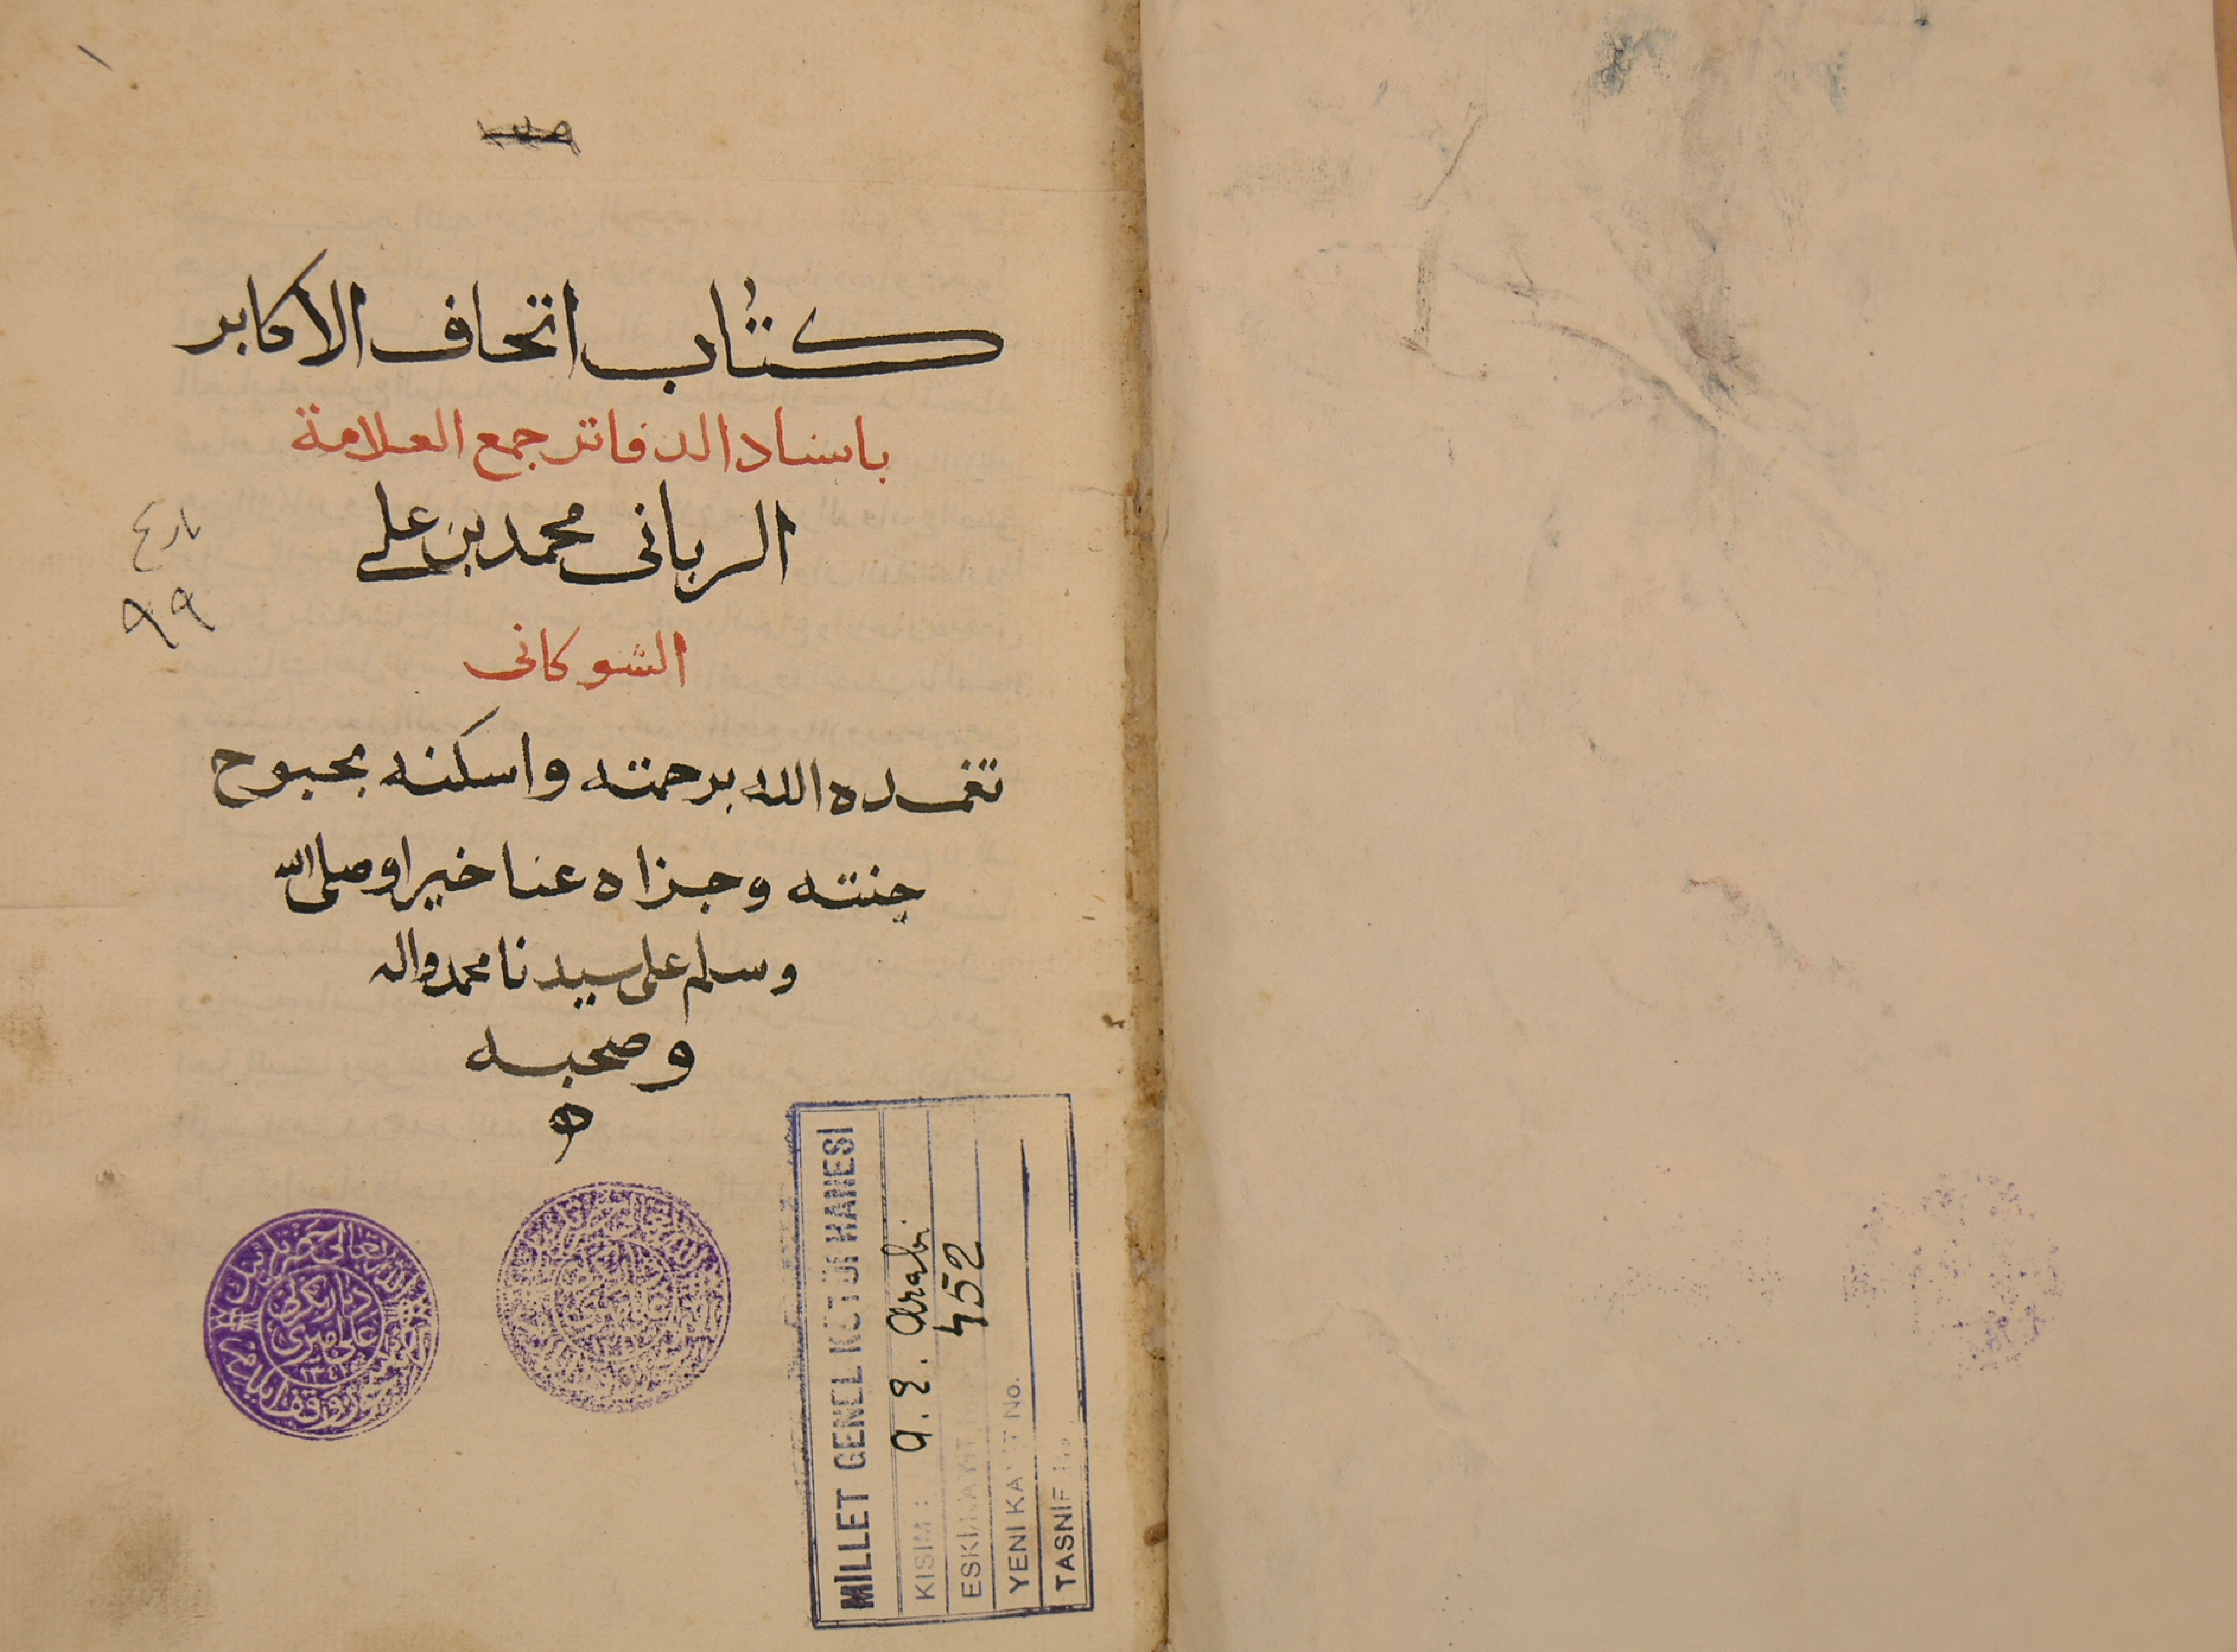 كتاب اتحاف الاكابر
باسناد الدفاتر جمع العلامة
الربانى محمد بن على
الشوكانى
تغمده الله برحمته واسكنه بحبوح
جنته وجزاه عنا خيرا وصلى الله
وسلم على سيدنا محمد واله
وصحبه
٩٩
علي اميرى
MİLLET GENEL KÜTÜPHANESİ
KISIM : A. E. Arabi
ESKİ KAYIT 452
YENİ KAYIT No.
TASNİF No.